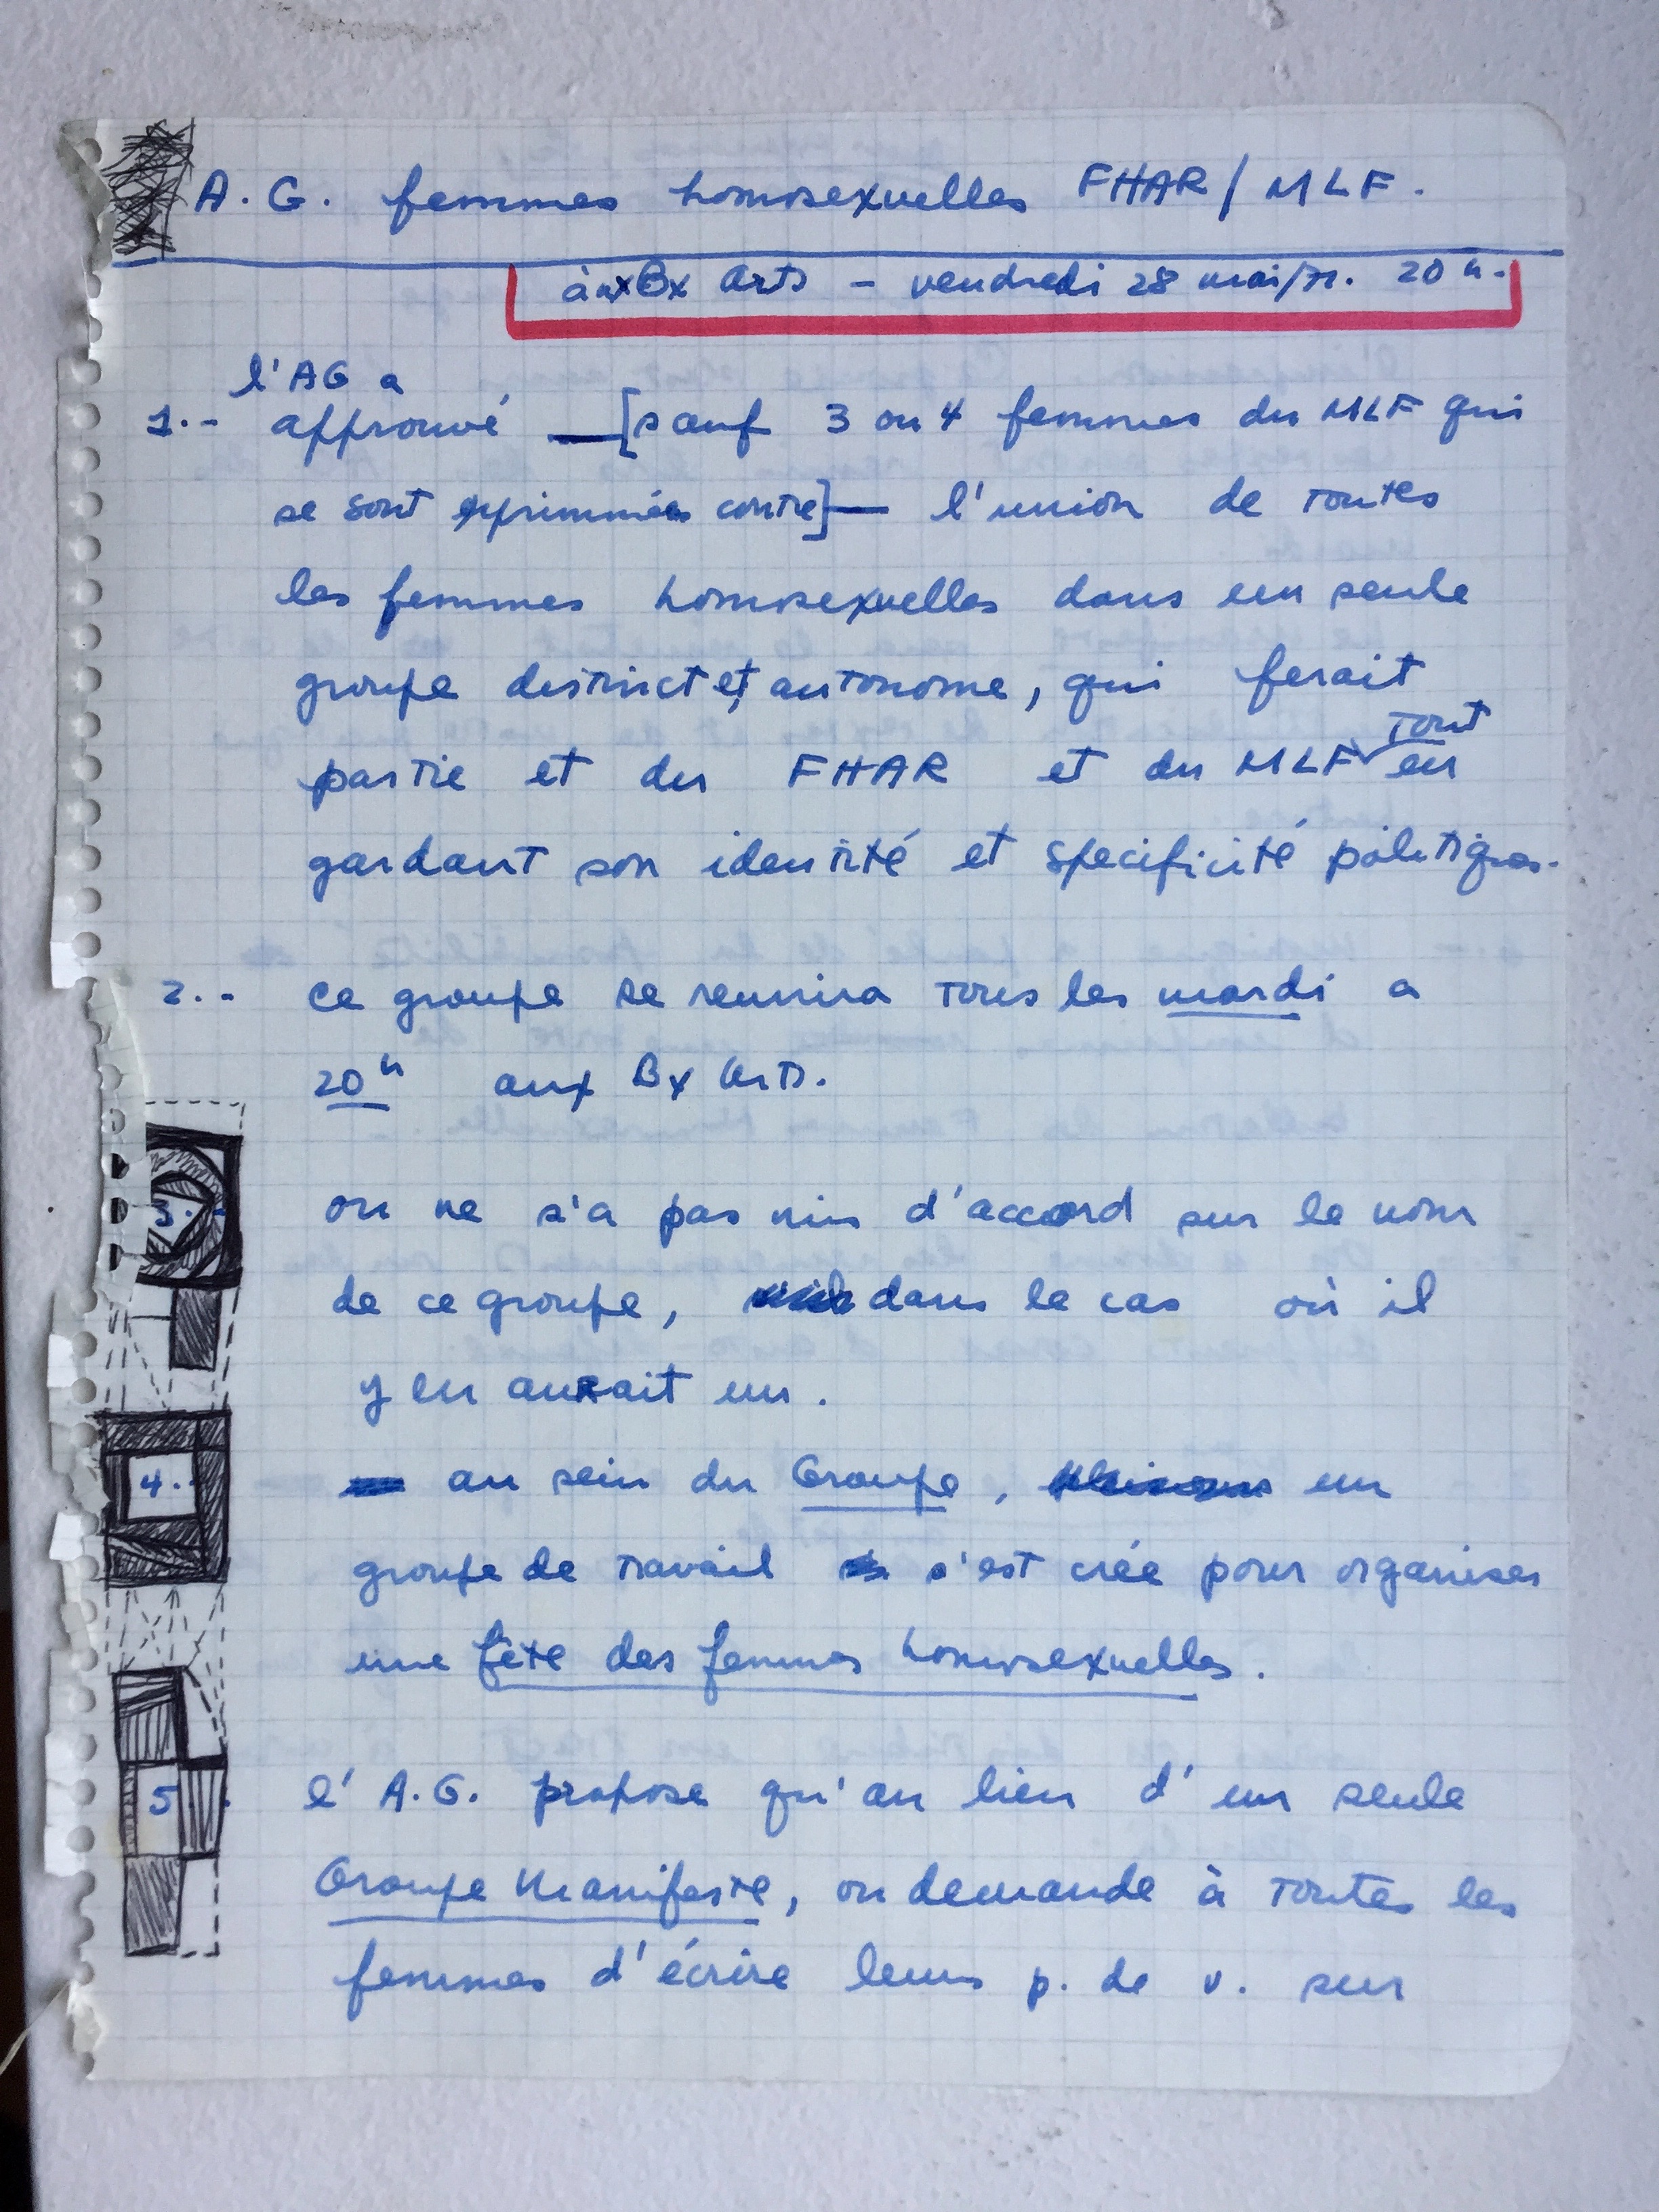 A.G. femmes homosexuelles FHAR/MLF.
aux Bx Arts - vendredi 28 mai/71. 20 h.
l'AG a
1.- approuvé —[sauf 3 ou 4 femmes du MLF qui
se sont exprimmées contre]— l'union de toutes
les femmes homosexuelles dans un seule
groupe distinct et autonome, qui ferait
tout
partie et du FHAR et du MLF en
gardant son identité et specificité politiques.
2.- ce groupe se reunira tous les mardi a
20h aux Bx Arts.
3.- on ne s'a pas mis d'accord sur le nom
de ce groupe, dans le cas où il
y en aurait un.
4.- au sein du Groupe, un
groupe de travail s'est crée pour organiser
une fête des femmes homosexuelles.
5 l'A.G. propose qu'au lieu d'un seule
Groupe Manifeste, on demande à toutes les
femmes d'écrire leurs p. de v. sur